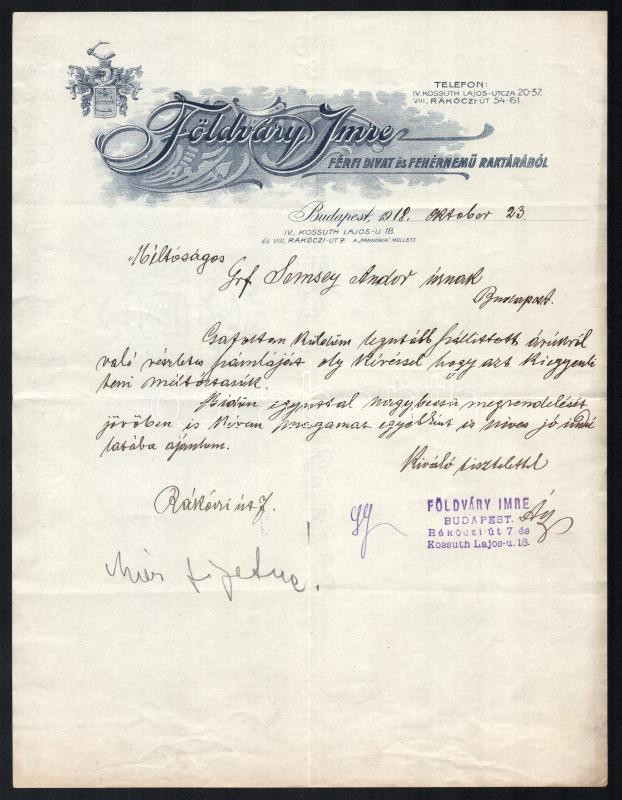 TELEFON:
IV. KOSSUTH LAJOS-UTCZA 20-37.
VIII. RÁKÓCZI-ÚT 54-61.
Földváry Imre
FÉRFI DIVAT és FEHÉRNEMŰ RAKTÁRÁBÓL
Budapest, 1918. Oktober 23
IV. KOSSUTH LAJOS-U. 18.
ÉS VIII. RÁKÓCZI-ÚT 7 A „PANNONIA" MELLETT.
Méltóságos
Grf. Semsey Andor úrnak
Budapest.
Csatoltan küldöm legutóbb szállitott árúkról
való részletes számláját oly kéréssel hogy azt kiegyenli
teni méltóztassék.
egyuttal nagybecsü megrendelését
jövőben is kérem magamat egyébként is nives jó indu
latába ajánlom.
Kiváló tisztelettel
Rákóczi út 7.
FÖLDVÁRY IMRE
BUDAPEST.
Rákóczi-út 7 és
Kossuth Lajos-u. 18.
fizetve!